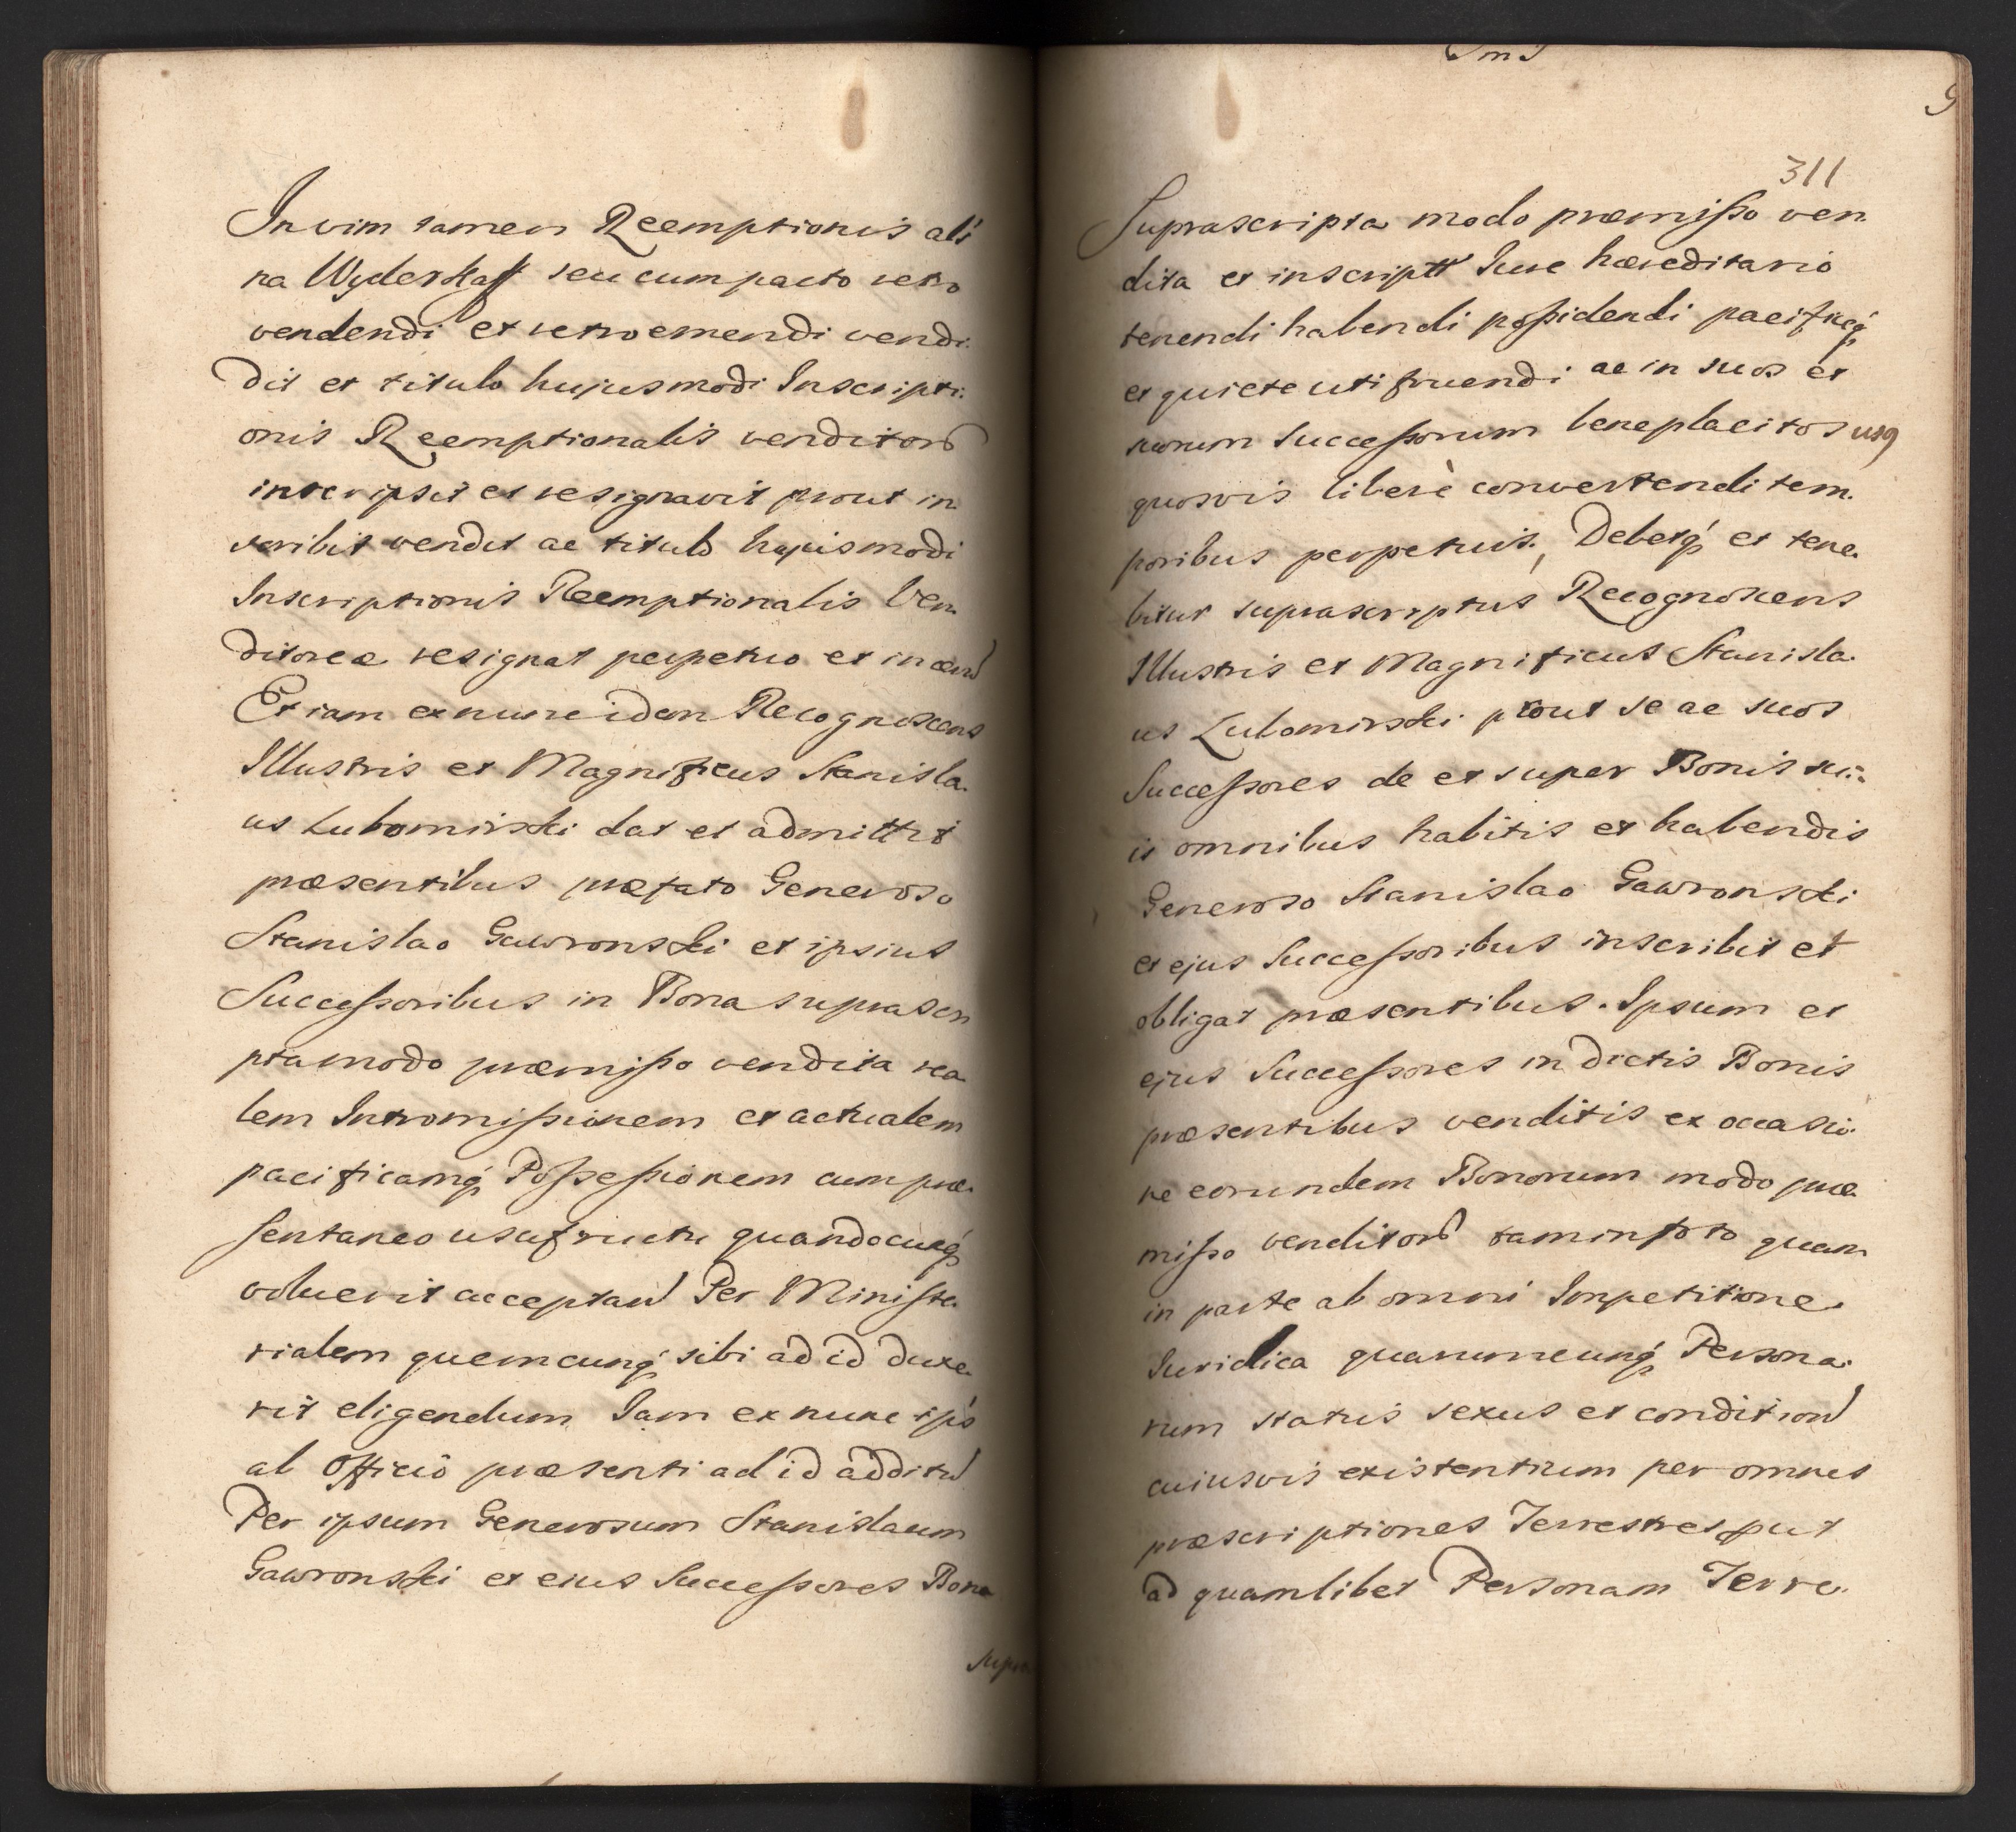 In vim tamen Reemptionis als
na Wyderkaff seu cum pacto retro
vendendi et retroemendi vendi
dit et titulo hujusmodi Inscripti.
onis Reemptionalis venditor
inscripsit et resignavit prout in
scribit vendit ac titulo hujusmodi
Inscriptionis Reemptionalis Ven
ditoreæ resignat perpetuo et in æv
Et iam ex nunc idem Recognoscens
Illustris et Magnificus Stanisla.
us Lubomirski dat et admittit
præsentibus præfato Generoso
Stanislao Gawronski et ipsius
Successoribus in Bona suprascri
pta modo præmisso vendita rea
lem Intromissionem et actualem
pacificamq́ Possessionem cum præ.
sentaneo usufructu quandocunq́
voluerit acceptan Per Ministe.
rialem quemcunq́ sibi ad id duxe.
rit eligendum Iam ex nunc ips
ab Officiô præsenti ad id addit
Per ipsum Generosum Stanislaum
Gawronski et eius Successores Bona
supra
311
Suprascripta modo præmisso ven
dita et inscriptt Iure hæreditario
tenendi habendi possidendi pacificeq́
et quiete utifruendi ac in suos et
suorum Successorum beneplacitos usq
quosvis liberè convertendi tem.
poribus perpetuis, Debetq́ et tene.
bitur suprascriptus Recognoscens
Illustris et Magnificus Stanisla.
us Lubomirski prout se ac suos
Successores de et super Bonis su:
is omnibus habitis et habendis
Generoso Stanislao Gawronski
et ejus Successoribus inscribit et
obligat præsentibus. Ipsum et
ejus Successores in dictis Bonis
præsentibus venditis ex occasio.
ne eorundem Bonorum modo præ.
misso venditor tam in toto quam
in parte ab omni Impetitione
Iuridica quarumcunq́ Persona.
rum status sexus et condition
cuiusvis existentium per omnes
præscriptiones Terrestres put
ad quamlibet Personam Terre.